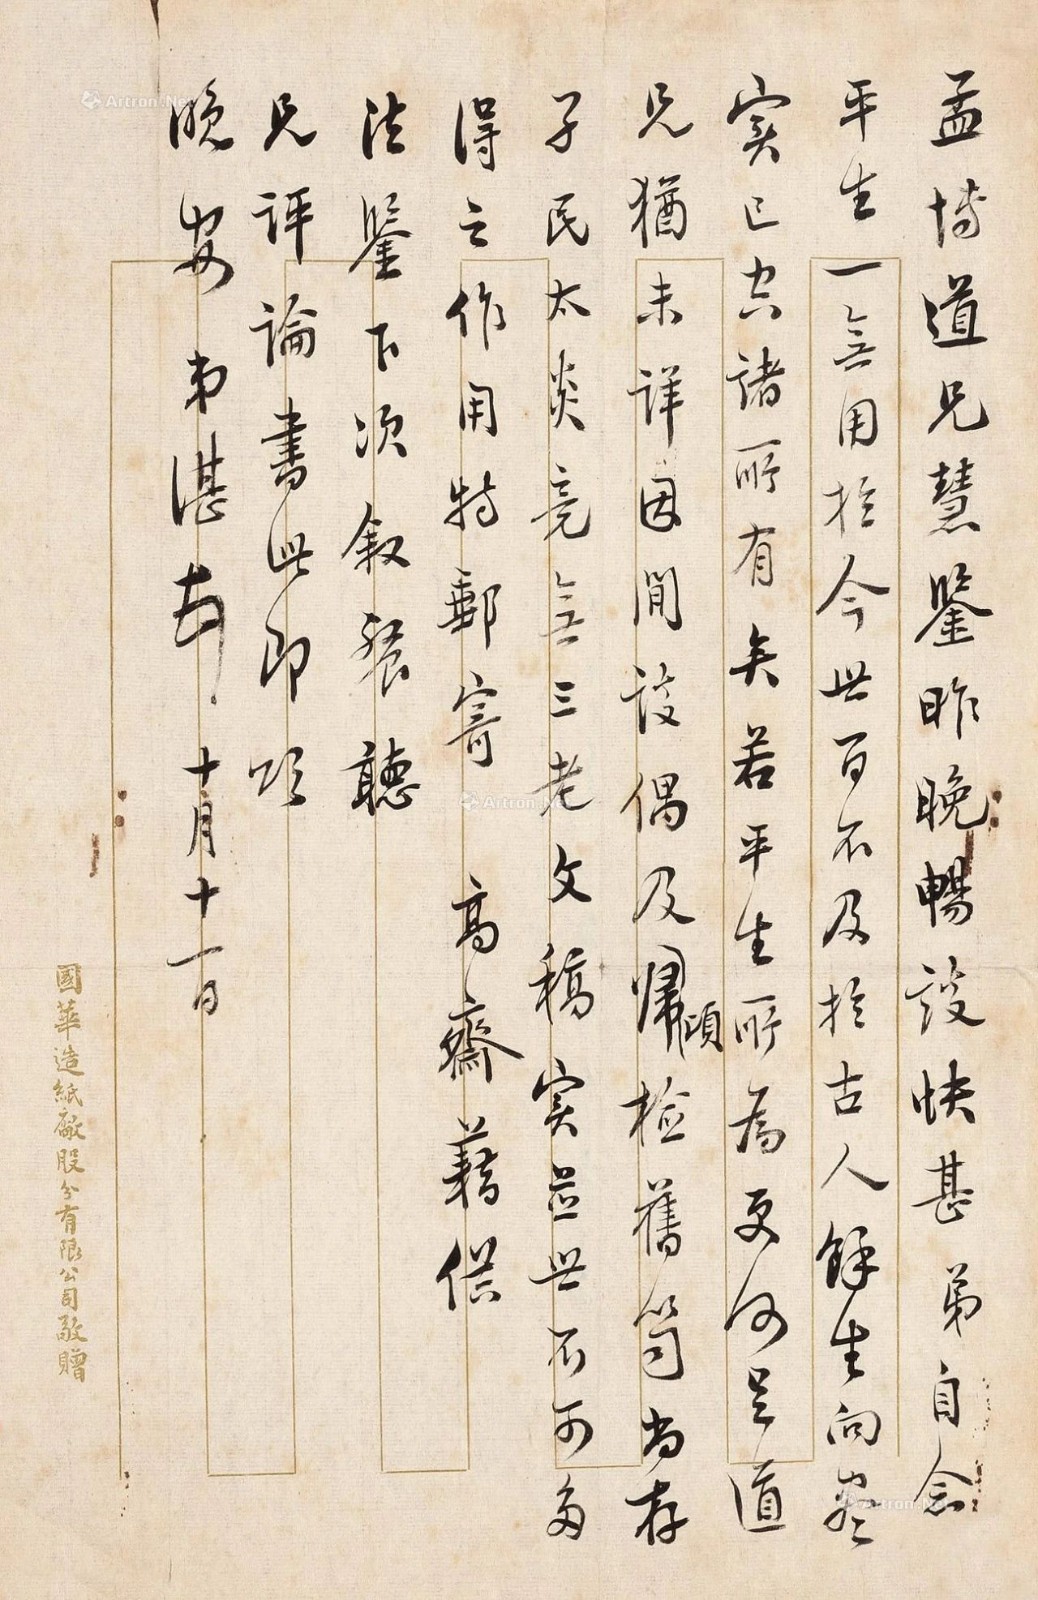 孟博道兄慧鑒昨晚暢談快甚弟自念
平生一無用於今世百不及於古人餘生向盡
實已空諸所有矣若平生所為更何足道
兄猶未詳因間談偶及歸頃檢舊笥尚存
孑民太炎竞無三老文稿實並世不可多
得之作用特郵寄高齋藉供
法鑒下次敘餐聽
兄評論書此即頌
晚安弟湛 十月十一日
國華造紙廠股分有限公司敬贈
Artron.Net
Artron.Net
Artron.Net